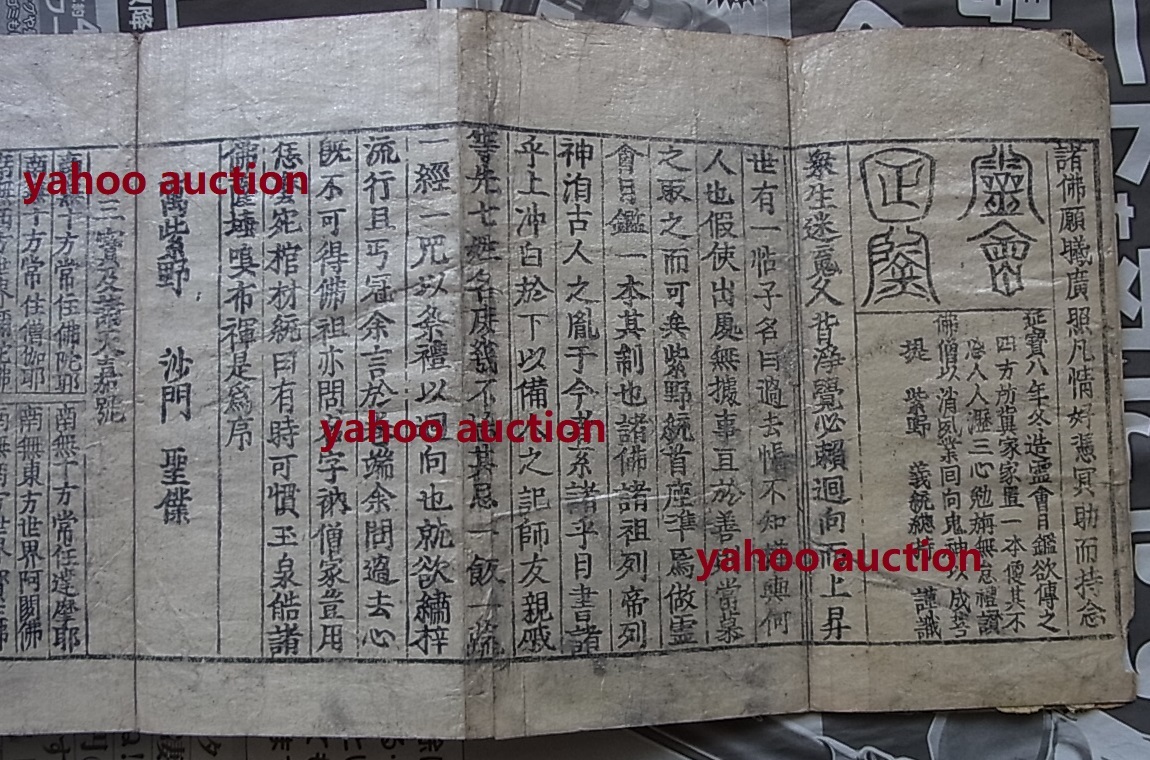 諸佛願曦廣照凡情好悲冥助而持念
靈會
日鑒
延寶八年冬造靈會日鑑欲傳之
四方所冀家家置一本便其不
人人歷三心勉旃無怠禮讚
佛僧以消夙業回向鬼神以成菩
提 紫野 義統 謹識
眾生迷冤久皆淨覺必賴迴向而上昇
世有一帖子名曰過去帳不知權輿何
人也假使出處無據事且於善應當慕
之取之而可矣紫野統首座準焉做靈
會日鑑一本其制也諸佛諸祖列帝列
神洎古人之胤于今者系諸乎日書諸
乎上沖白於下以備人之記師友親戚
等先亡姓名庶幾不忘其忌一飯一蔬
一經一咒以染禮以迴向也就欲繡梓
流行且丐冠余言於其端余問過去心
既不可得佛祖亦閑名字衲僧家豈用
恁麼宛棺材統曰有時可慣玉泉皓諸
佛 嗅布褌是爲序
萬紫野 沙門
三寶及諸大嘉號
南無十方常住佛陀耶
南無十方常住達摩耶
南無十方常住僧伽耶
南無東方世界阿閦佛
yahoo auction
yahoo auction
yahoo auction